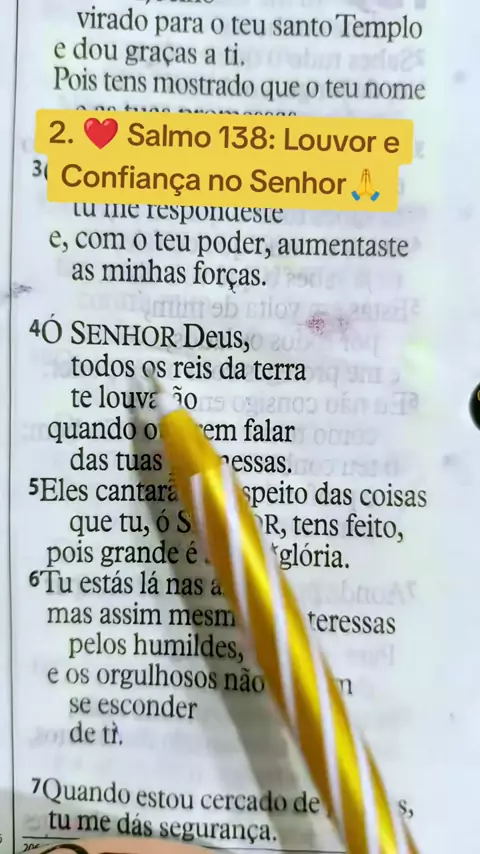 virado para o teu santo Templo
e dou graças a ti.
Pois tens mostrado que o teu nome
2. ❤️ Salmo 138: Louvor e
Confiança no Senhor 🙏
3
tu me respondeste
e, com o teu poder, aumentaste
as minhas forças.
4Ó SENHOR Deus,
todos os reis da terra
te louvarão
quando falar
das tuas
5Eles das coisas
que tu, ó tens feito,
pois grande é glória.
6Tu estás lá nas
mas assim
pelos humildes,
e os orgulhosos não
se esconder
de ti.
7Quando estou cercado de
tu me dás segurança.